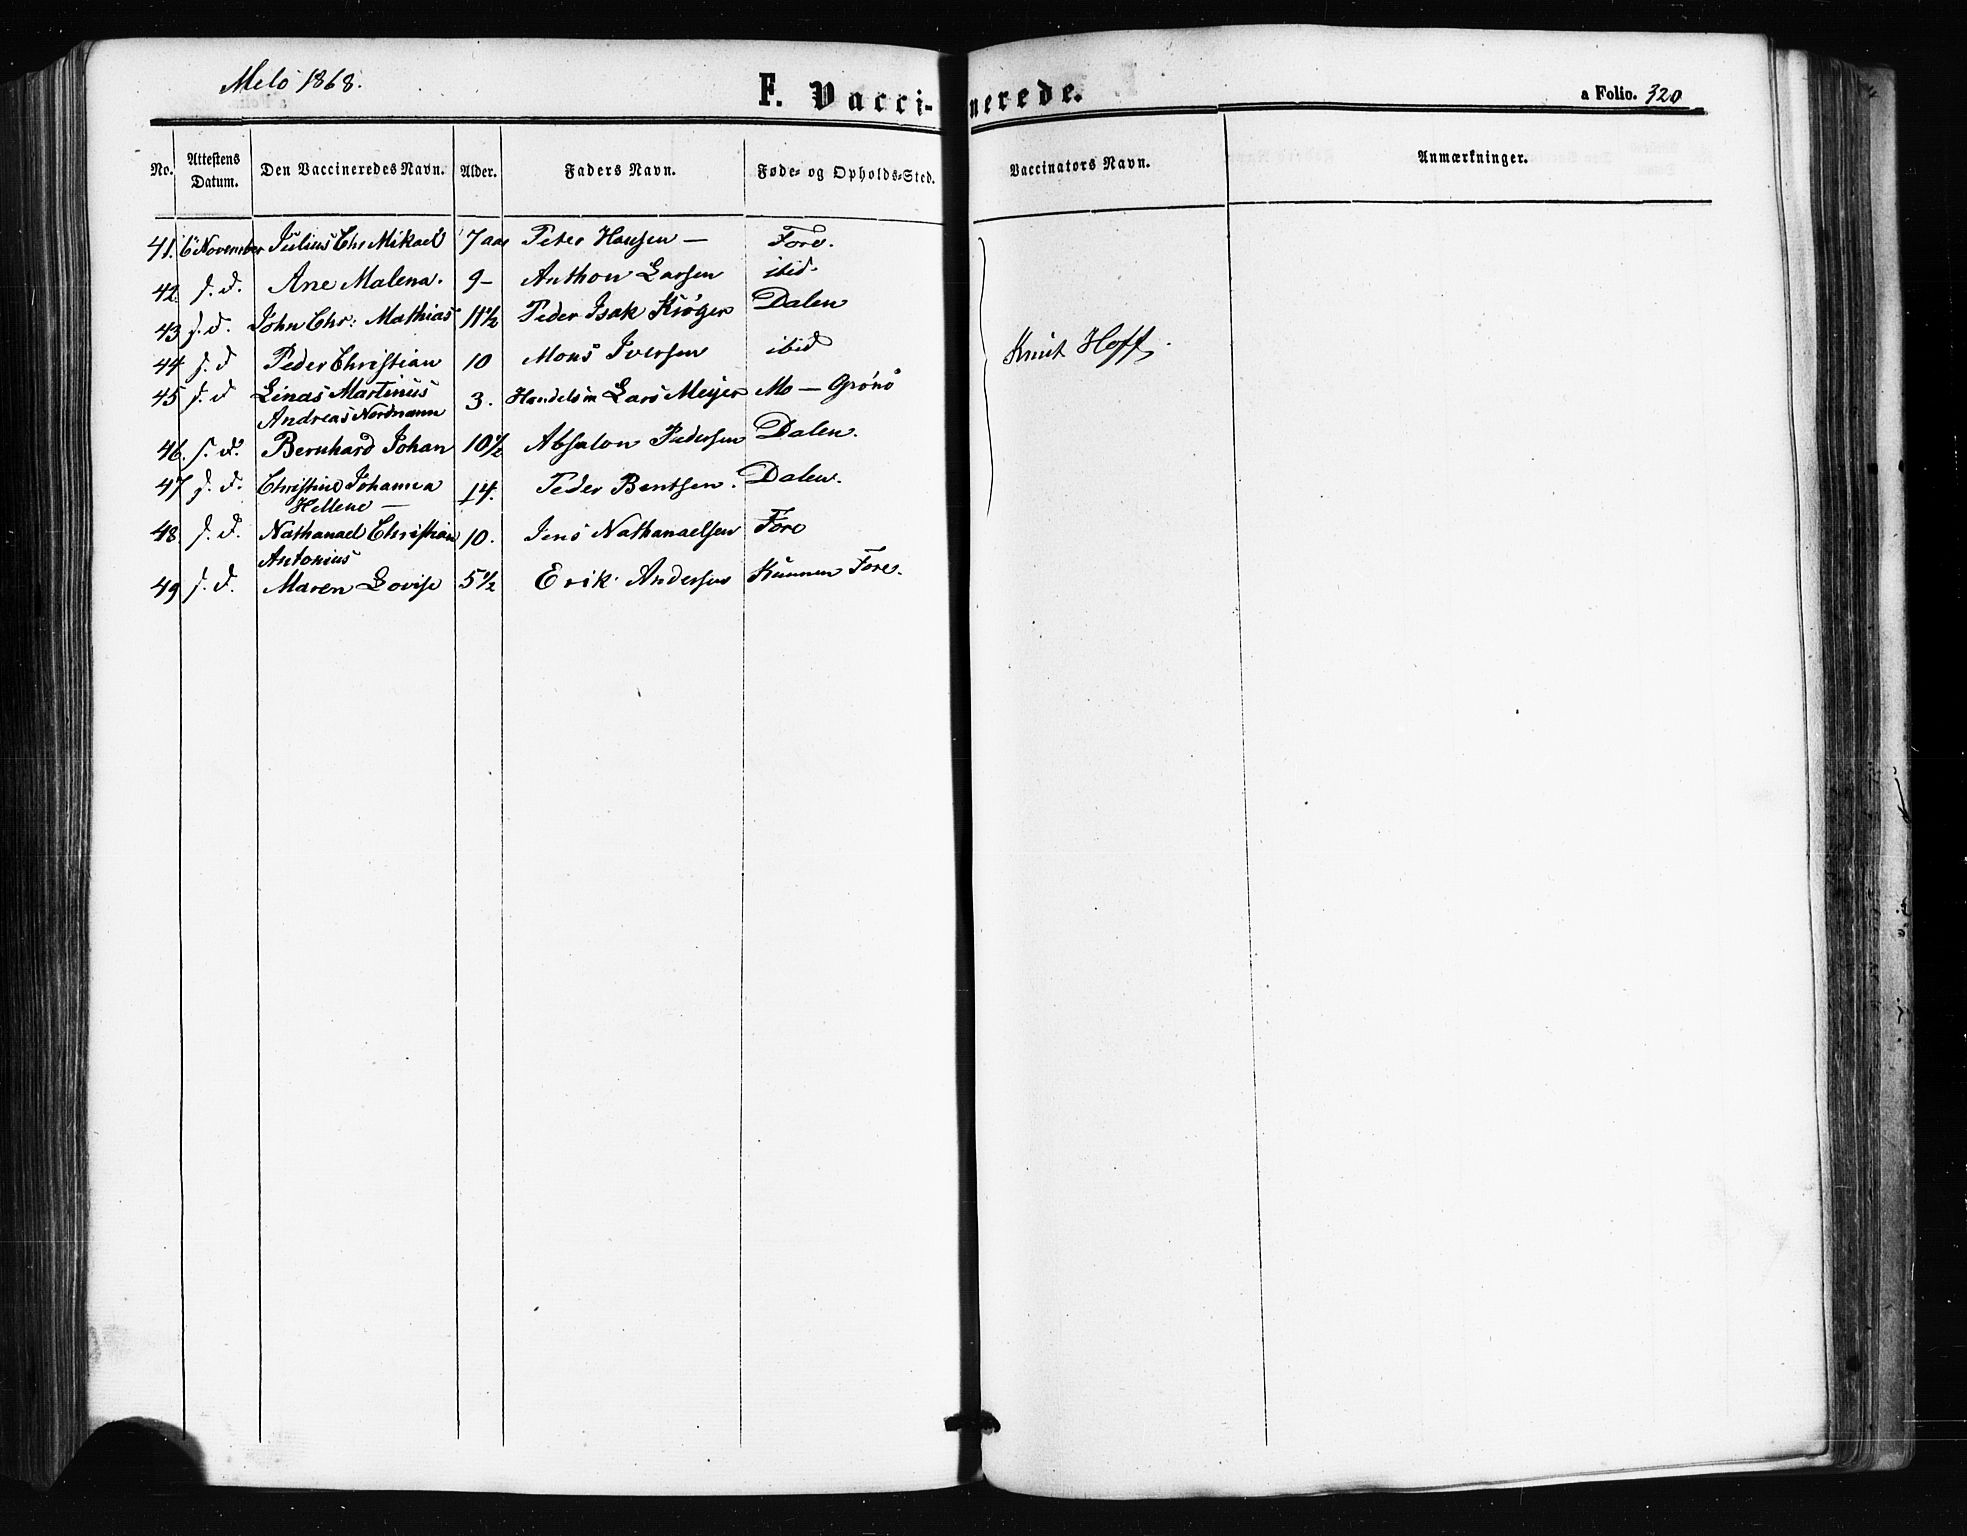 Melø 1868.
F. Vaccinerede.
a Folio. 320
No. Attestens Datum. Den Vaccineredes Navn. Alder. Faders Navn. Føde- og Opholds-Sted. Vaccinators Navn. Anmærkninger.
41. 6 November Julius Chr Mikael 7 aar Peter Hansen — Fore.
42. s. d. Ane Malena. 9 – Anthon Larsen ibid.
43 s. d. John Chr: Mathias 11½ Peder Isak Krøger Dalen
44 s. d Peder Christian 10 Mons Iversen ibid
Knut Hoff.
45 s. d Linas Martinus 3. Handelsm Lars Meyer Mo — Grønø
Andreas Nordmann
46. s. d. Bernhard Johan 10½ Absalon Pedersen Dalen.
47 s. d. Christine Johanna 14. Peder Bentsen. Dalen.
Hellene —
48. s. d. Nathanael Christian 10. Jens Nathanaelsen Fore
Antonius
49 s. d. Maren Lovise 5½ Erik Andersen Kunnen Fore.